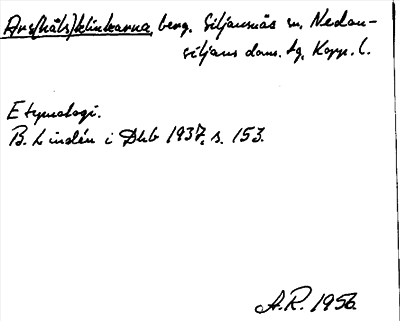 Ars(håls)klinkarna, berg. Siljansnäs sn, Nedan-
siljans doms. hg, Kopp. l.
Etymologi.
B. Lindén i Dhb 1937, s. 153.
A.R. 1956.